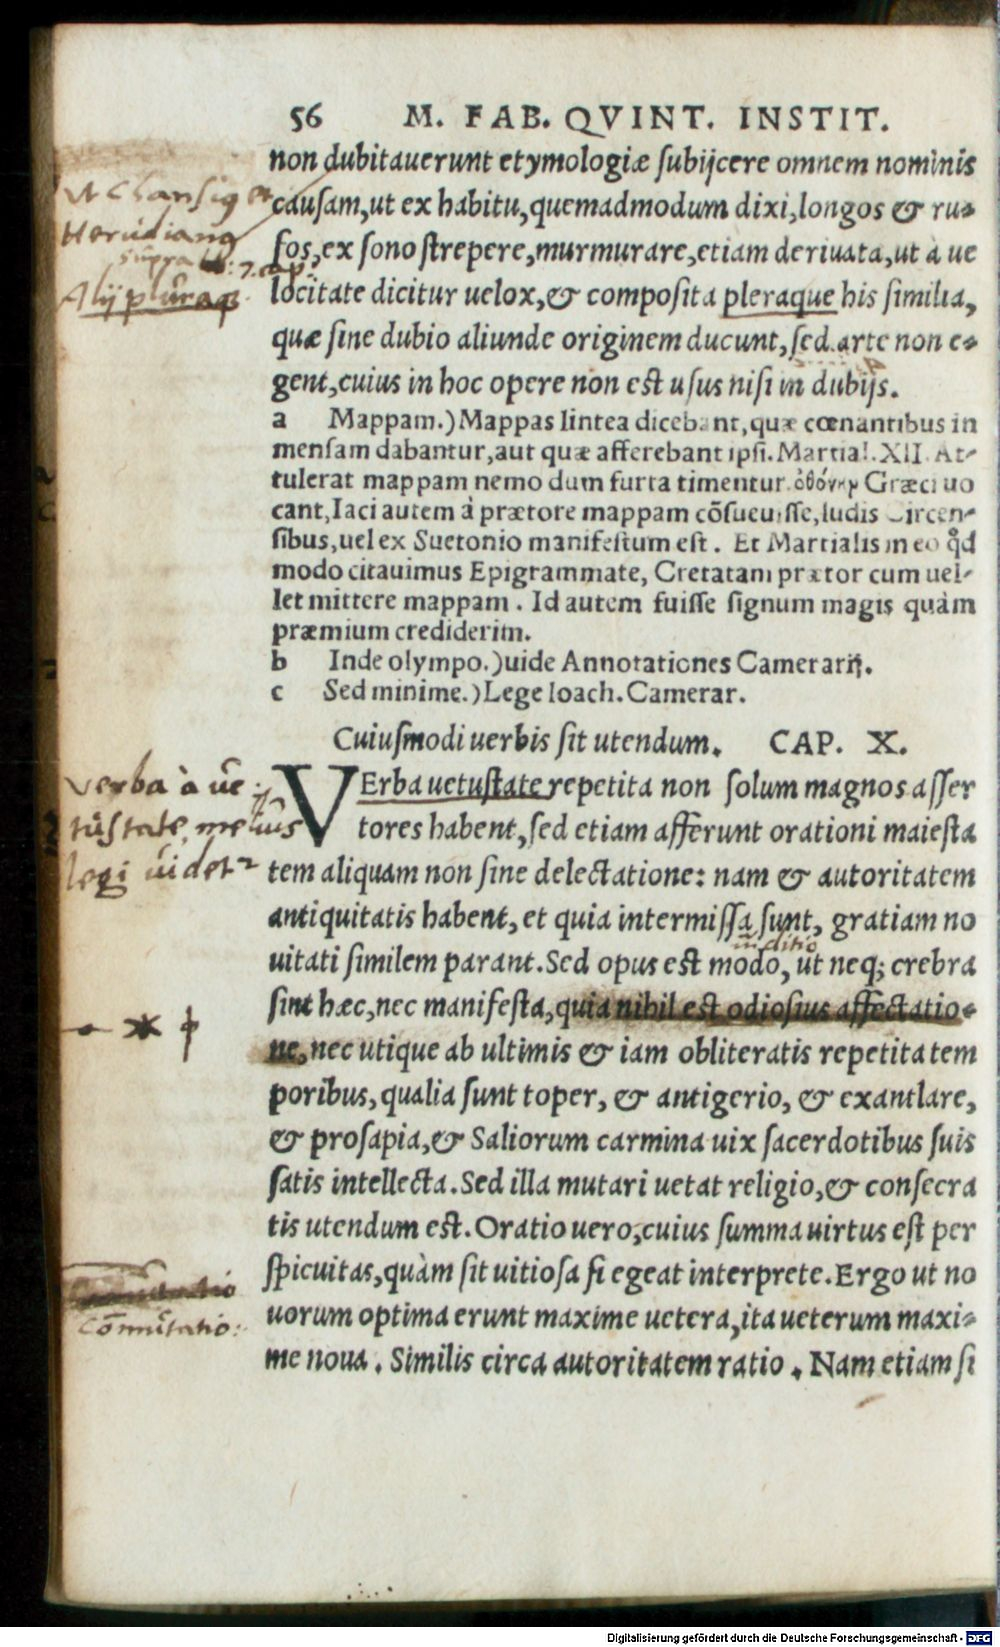 56 M. FAB. QVINT. INSTIT.
non dubitauerunt etymologiæ subijcere omnem nominis
causam, ut ex habitu, quemadmodum dixi, longos & ru-
fos, ex sono strepere, murmurare, etiam deriuata, ut à ue
locitate dicitur uelox, & composita pleraque his similia,
quæ sine dubio aliunde originem ducunt, sed arte non e-
gent, cuius in hoc opere non est usus nisi in dubijs.
a Mappam.) Mappas lintea dicebant, quæ cœnantibus in
mensam dabantur, aut quæ afferebant ipsi. Martial. XII. At-
tulerat mappam nemo dum furta timentur. Græci uo
cant, Iaci autem à prætore mappam cõsueuisse, ludis Circen-
sibus, uel ex Suetonio manifestum est. Et Martialis in eo qd̃
modo citauimus Epigrammate, Cretatam prætor cum uel-
let mittere mappam. Id autem fuisse signum magis quàm
præmium crediderim.
b Inde olympo.) uide Annotationes Camerarij.
c Sed minime.) Lege Ioach. Camerar.
Cuiusmodi uerbis sit utendum. CAP. X.
VErba uetustate repetita non solum magnos asser
tores habent, sed etiam afferunt orationi maiesta
tem aliquam non sine delectatione: nam & autoritatem
antiquitatis habent, et quia intermissa sunt, gratiam no
uitati similem parant. Sed opus est modo, ut neq; crebra
sint hæc, nec manifesta, quia nihil est odiosius affectatio-
ne, nec utique ab ultimis & iam obliteratis repetita tem
poribus, qualia sunt toper, & antigerio, & exantlare,
& prosapia, & Saliorum carmina uix sacerdotibus suis
satis intellecta. Sed illa mutari uetat religio, & consecra
tis utendum est. Oratio uero, cuius summa uirtus est per
spicuitas, quàm sit uitiosa si egeat interprete. Ergo ut no
uorum optima erunt maxime uetera, ita ueterum maxi-
me noua. Similis circa autoritatem ratio. Nam etiam si
Verba à ue
tustate, melius
legi uidet
Digitalisierung gefördert durch die Deutsche Forschungsgemeinschaft - DFG